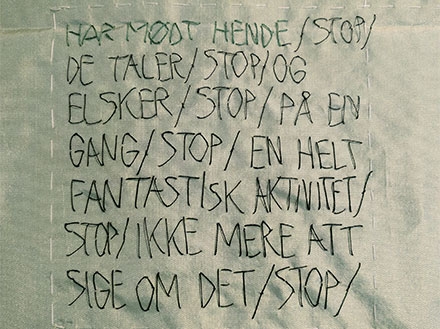 HAR MØDT HENDE/STOP/
DE TALER/STOP/OG
ELSKER/STOP/PÅ EN
GANG/STOP/EN HELT
FANTASTISK AKTIVITET/
STOP/IKKE MERE ATT
SIGE OM DET/STOP/